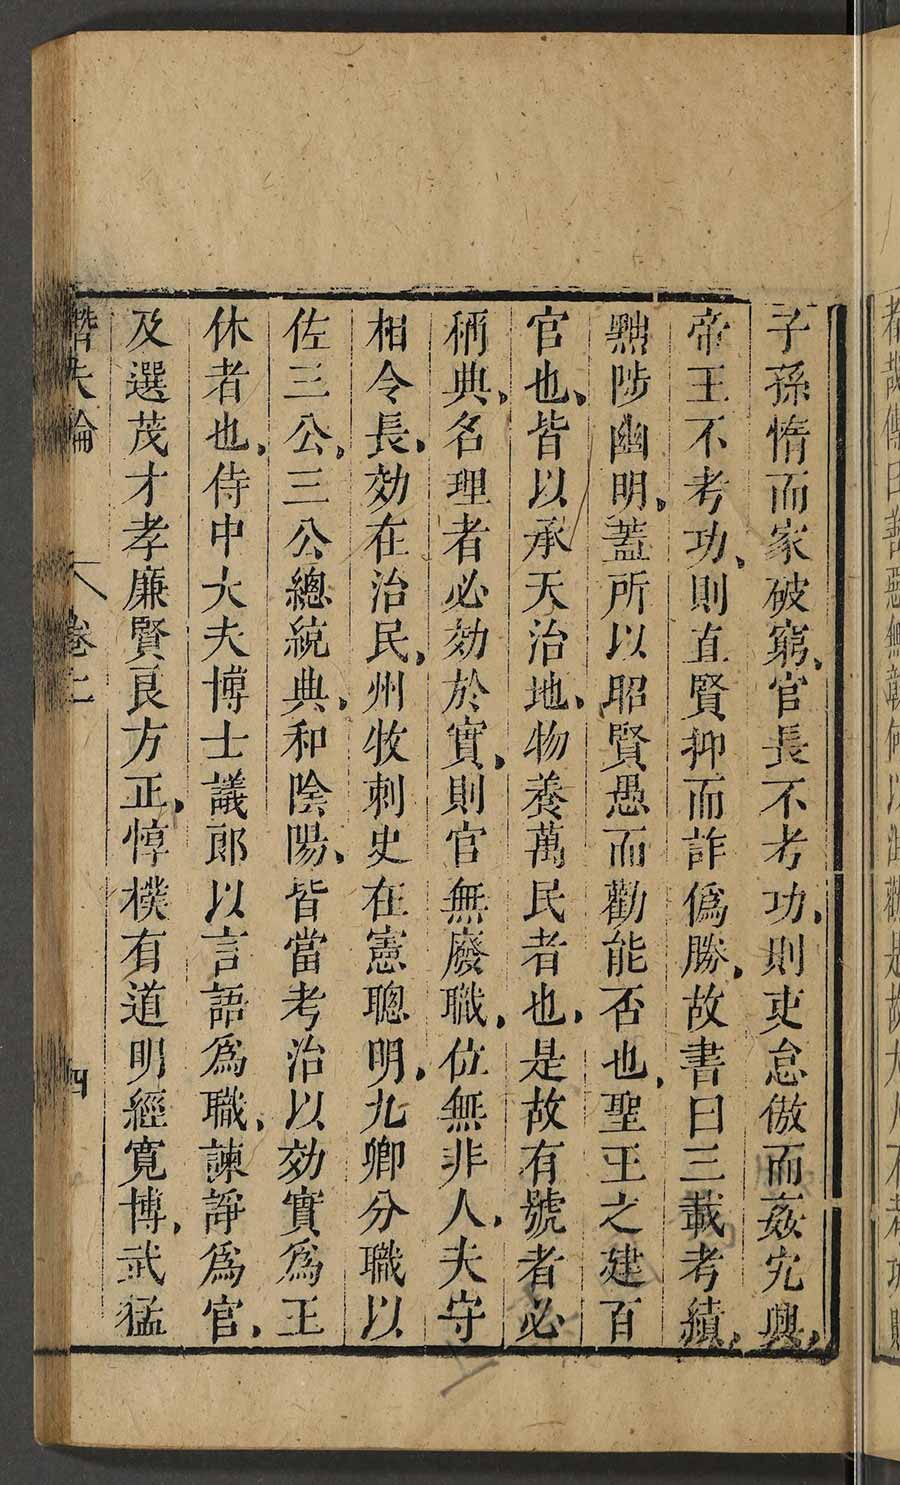 子孫惰而家破窮、官長不考功、則吏怠傲而姦宄興、
帝王不考功、則直賢抑而詐僞勝、故書曰三載考績、
黜陟幽明、蓋所以昭賢愚而勸能否也、聖王之建百
官也、皆以承天治地、物養萬民者也、是故有號者必
稱典、名理者必効於實、則官無廢職、位無非人、夫守
相令長、効在治民、州牧刺史在憲聰明、九卿分職以
佐三公、三公總統典、和陰陽、皆當考治以効實爲王
休者也、侍中大夫博士議郎以言語爲職、諫諍爲官、
及選茂才孝廉賢良方正、惇樸有道明經寬博、武猛
潛夫論 卷上 四